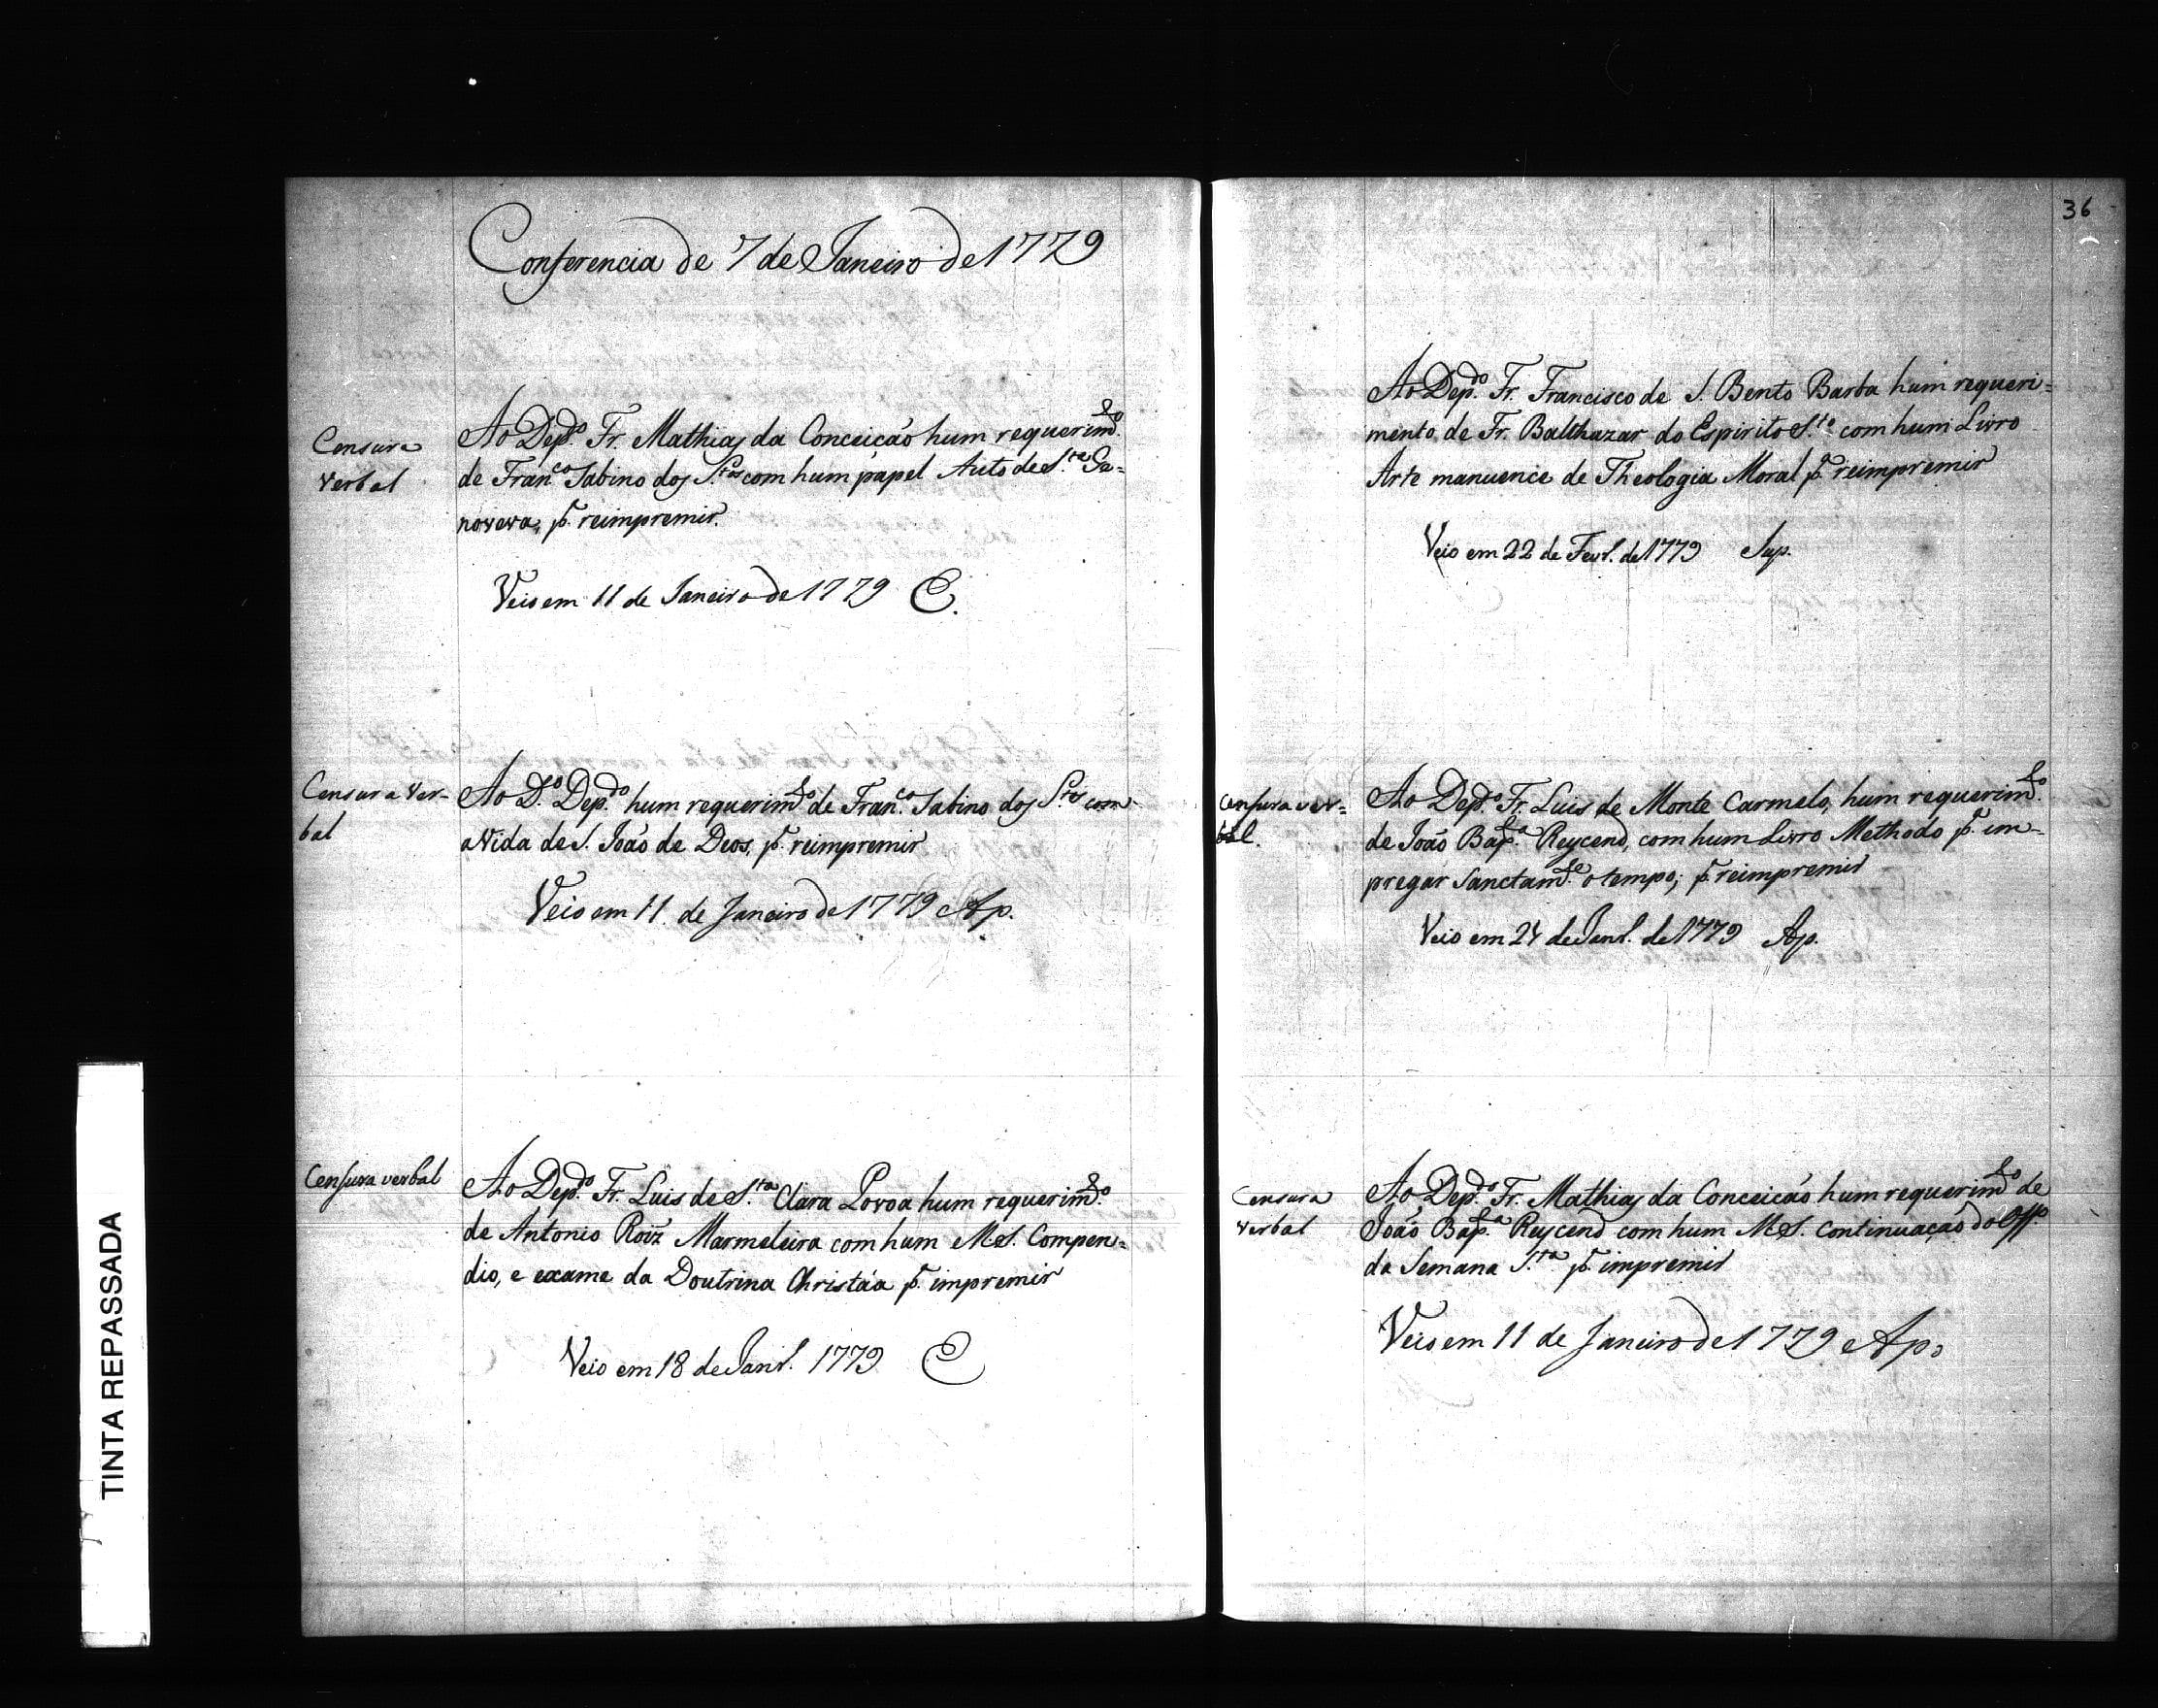 Conferencia de 7 de Janeiro de 1779
Censura
verbal
Ao Dep.do Fr. Mathias da Conceicáo hum requerim.to
de Fran.co Sabino dos S.tos com hum papel Auto de S.ta Ge=
noveva, p.a reimpremir.
Veio em 11 de Janeiro de 1779 E.
Censura Ver-
bal
Ao D.o Dep.do hum requerim.to de Fran.co Sabino dos S.tos com
a Vida de S. Joáo de Deos, p.a reimpremir
Veio em 11 de Janeiro de 1779 Ap.
Censura verbal
Ao Dep.do Fr. Luis de S.ta Clara Povoa hum requerim.to
de Antonio Roiz Marmeleira com hum MS. Compen=
dio, e exame da Doutrina Christáa p.a impremir
Veio em 18 de Janr. 1779 E
36
Ao Dep.do Fr. Francisco de S. Bento Barba hum requeri=
mento de Fr. Balthazar do Espirito S.to com hum Livro
Arte manuence de Theologia Moral p.a reimpremir
Veio em 22 de Fevr. de 1779 Sup.
Censura ver=
bal.
Ao Dep.do Fr. Luis de Monte Carmelo, hum requerim.to
de João Bap.ta Reycend, com hum Livro Methodo p.a em=
pregar Sanctam.te o tempo; p.a reimpremir
Veio em 24 de Janr. de 1779 Ap.
Censura
verbal
Ao Dep.do Fr. Mathias da Conceicáo hum requerim.to de
João Bap.ta Reycend com hum MS. Continuaçaó do Off.o
da Semana S.ta p.a impremir
Veio em 11 de Janeiro de 1779 Ap.
TINTA REPASSADA